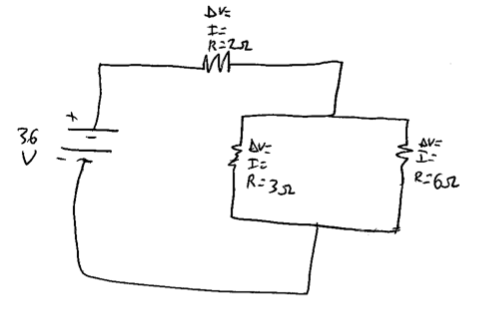 ΔV=
I=
R=2Ω
+
36
V
-
ΔV=
I=
R=3Ω
ΔV=
I=
R=6Ω